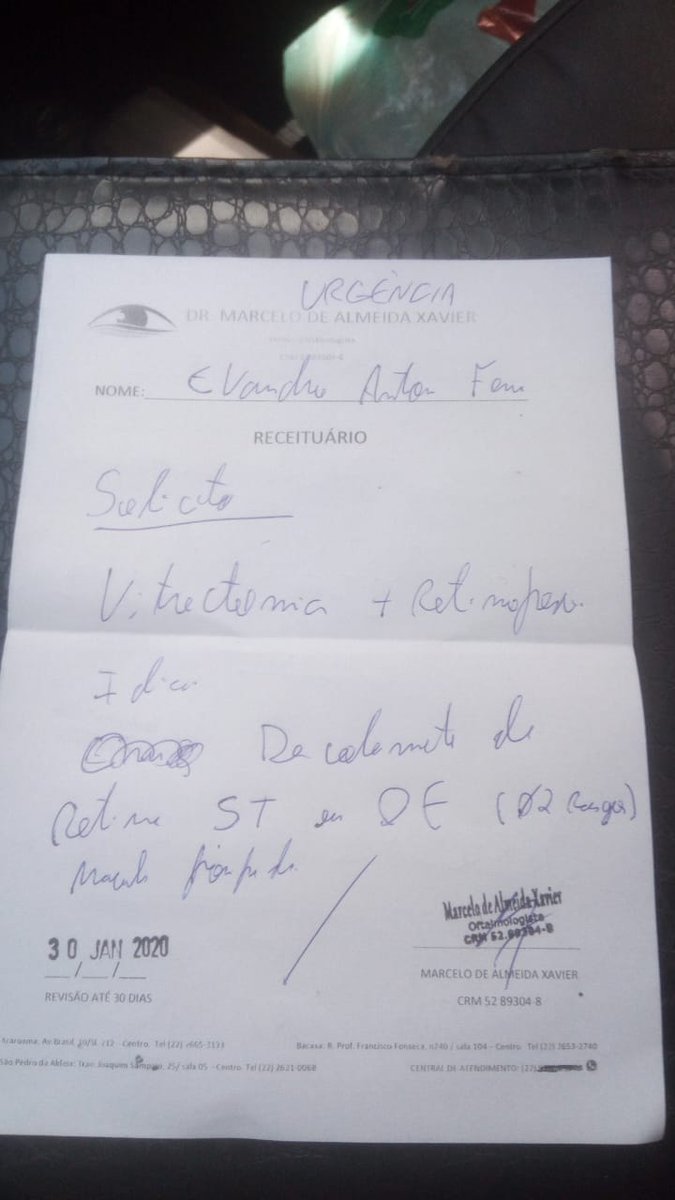 URGÊNCIA
DR. MARCELO DE ALMEIDA XAVIER
NOME: Evandro
RECEITUÁRIO
Solicito
Vitrectomia + Retinopexia
Descolamento de
Retina ST em OE (02 Rasgos)
Macula
30 JAN 2020
__/__/__
REVISÃO ATÉ 30 DIAS
Marcelo de Almeida Xavier
Oftalmologista
CRM 52.89304-8
MARCELO DE ALMEIDA XAVIER
CRM 52 89304-8
Araruama: Av Brasil, Centro. Tel (22)
Bacaxa: R. Prof. Francisco Fonseca, nº240 / sala 104 – Centro. Tel (22) 2653-2740
São Pedro da Aldeia: Trav. Joaquim 25/ sala 05 - Centro. Tel (22) 2621-0068
CENTRAL DE ATENDIMENTO: (22)